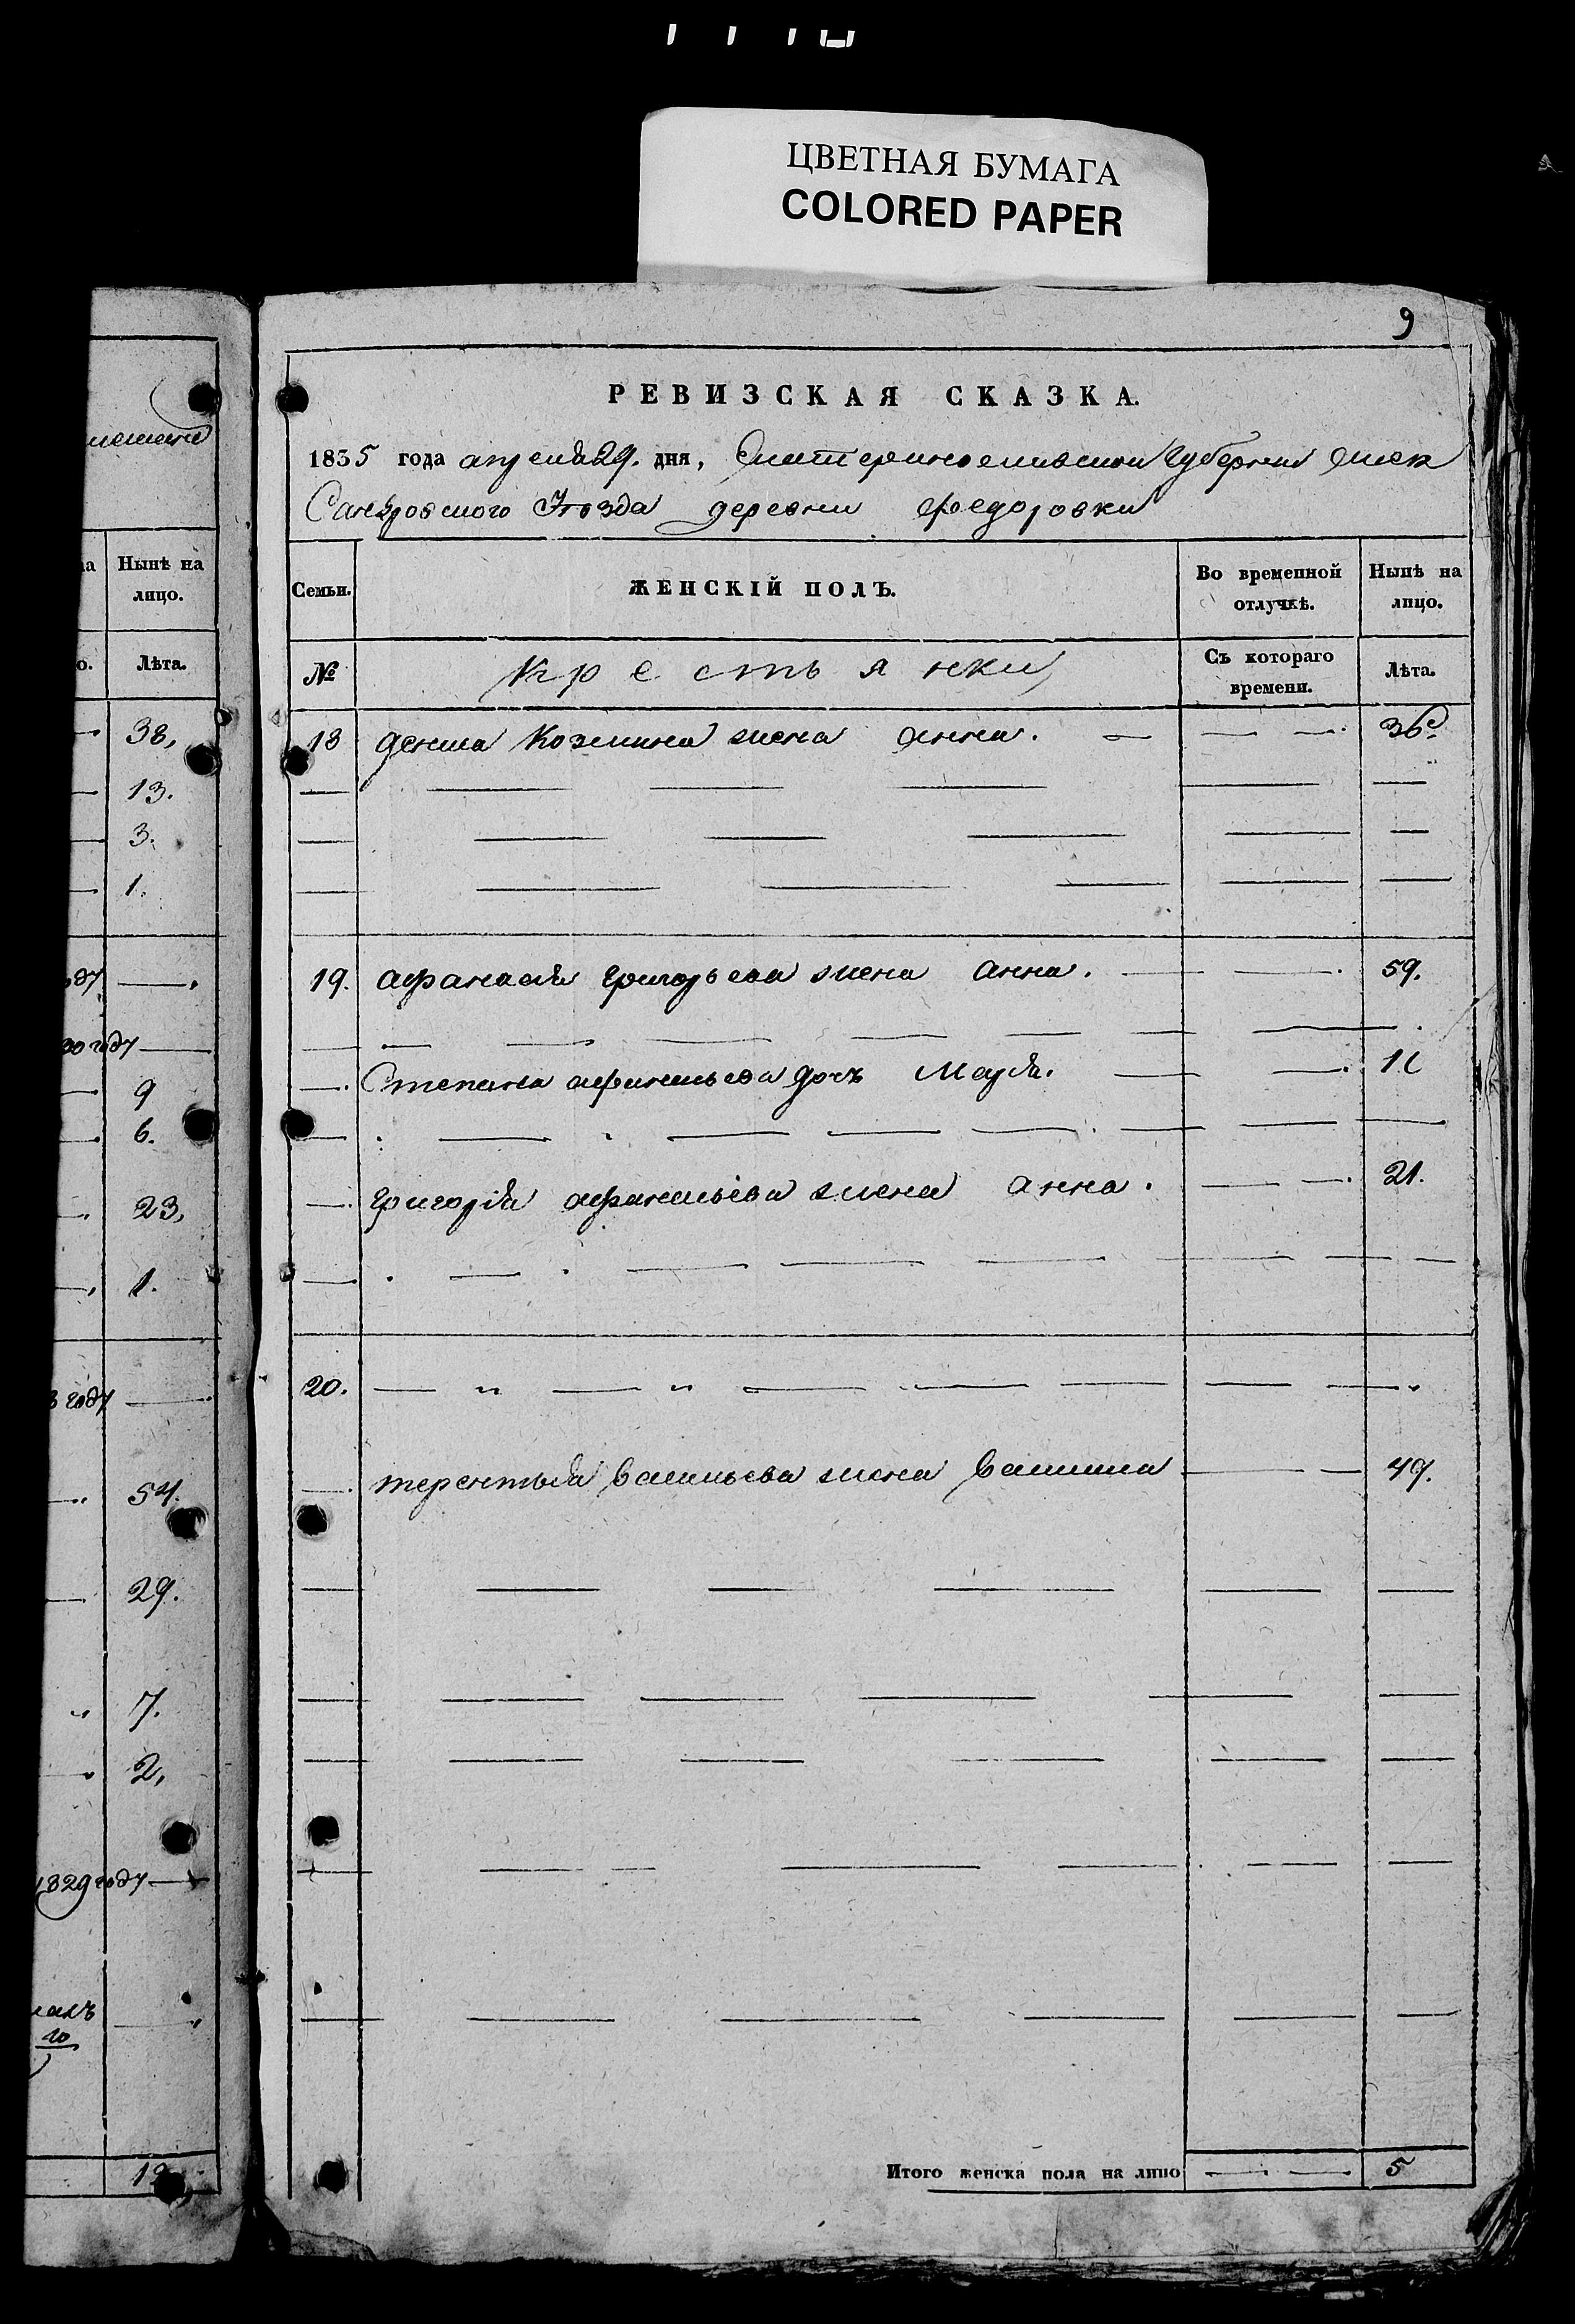 ЦВЕТНАЯ БУМАГА
COLORED PAPER
9
РЕВИЗСКАЯ СКАЗКА.
1835 года апреля 29. дня, Екатеринославской Губернии Алек
Сандровского Уѣзда деревни Федоровки
Семьи. ЖЕНСКІЙ ПОЛЪ. Во временной отлучкѣ. Нынѣ на лицо.
№ Крестьянки Съ котораго времени. Лѣта.
18 Козмина жена Анна. 36
19. Афанасія Григорьева жена Анна. 59.
Степана Афанасьева дочь Марія.
Григорія Афанасьева жена Анна. 21.
20.
Терентія Васильева жена 49.
Итого женска пола на лицо 5
Нынѣ на лицо.
Лѣта.
38,
13.
3.
1.
30 году
9
6.
23,
1.
3 году
54.
29.
7.
2,
1829 году